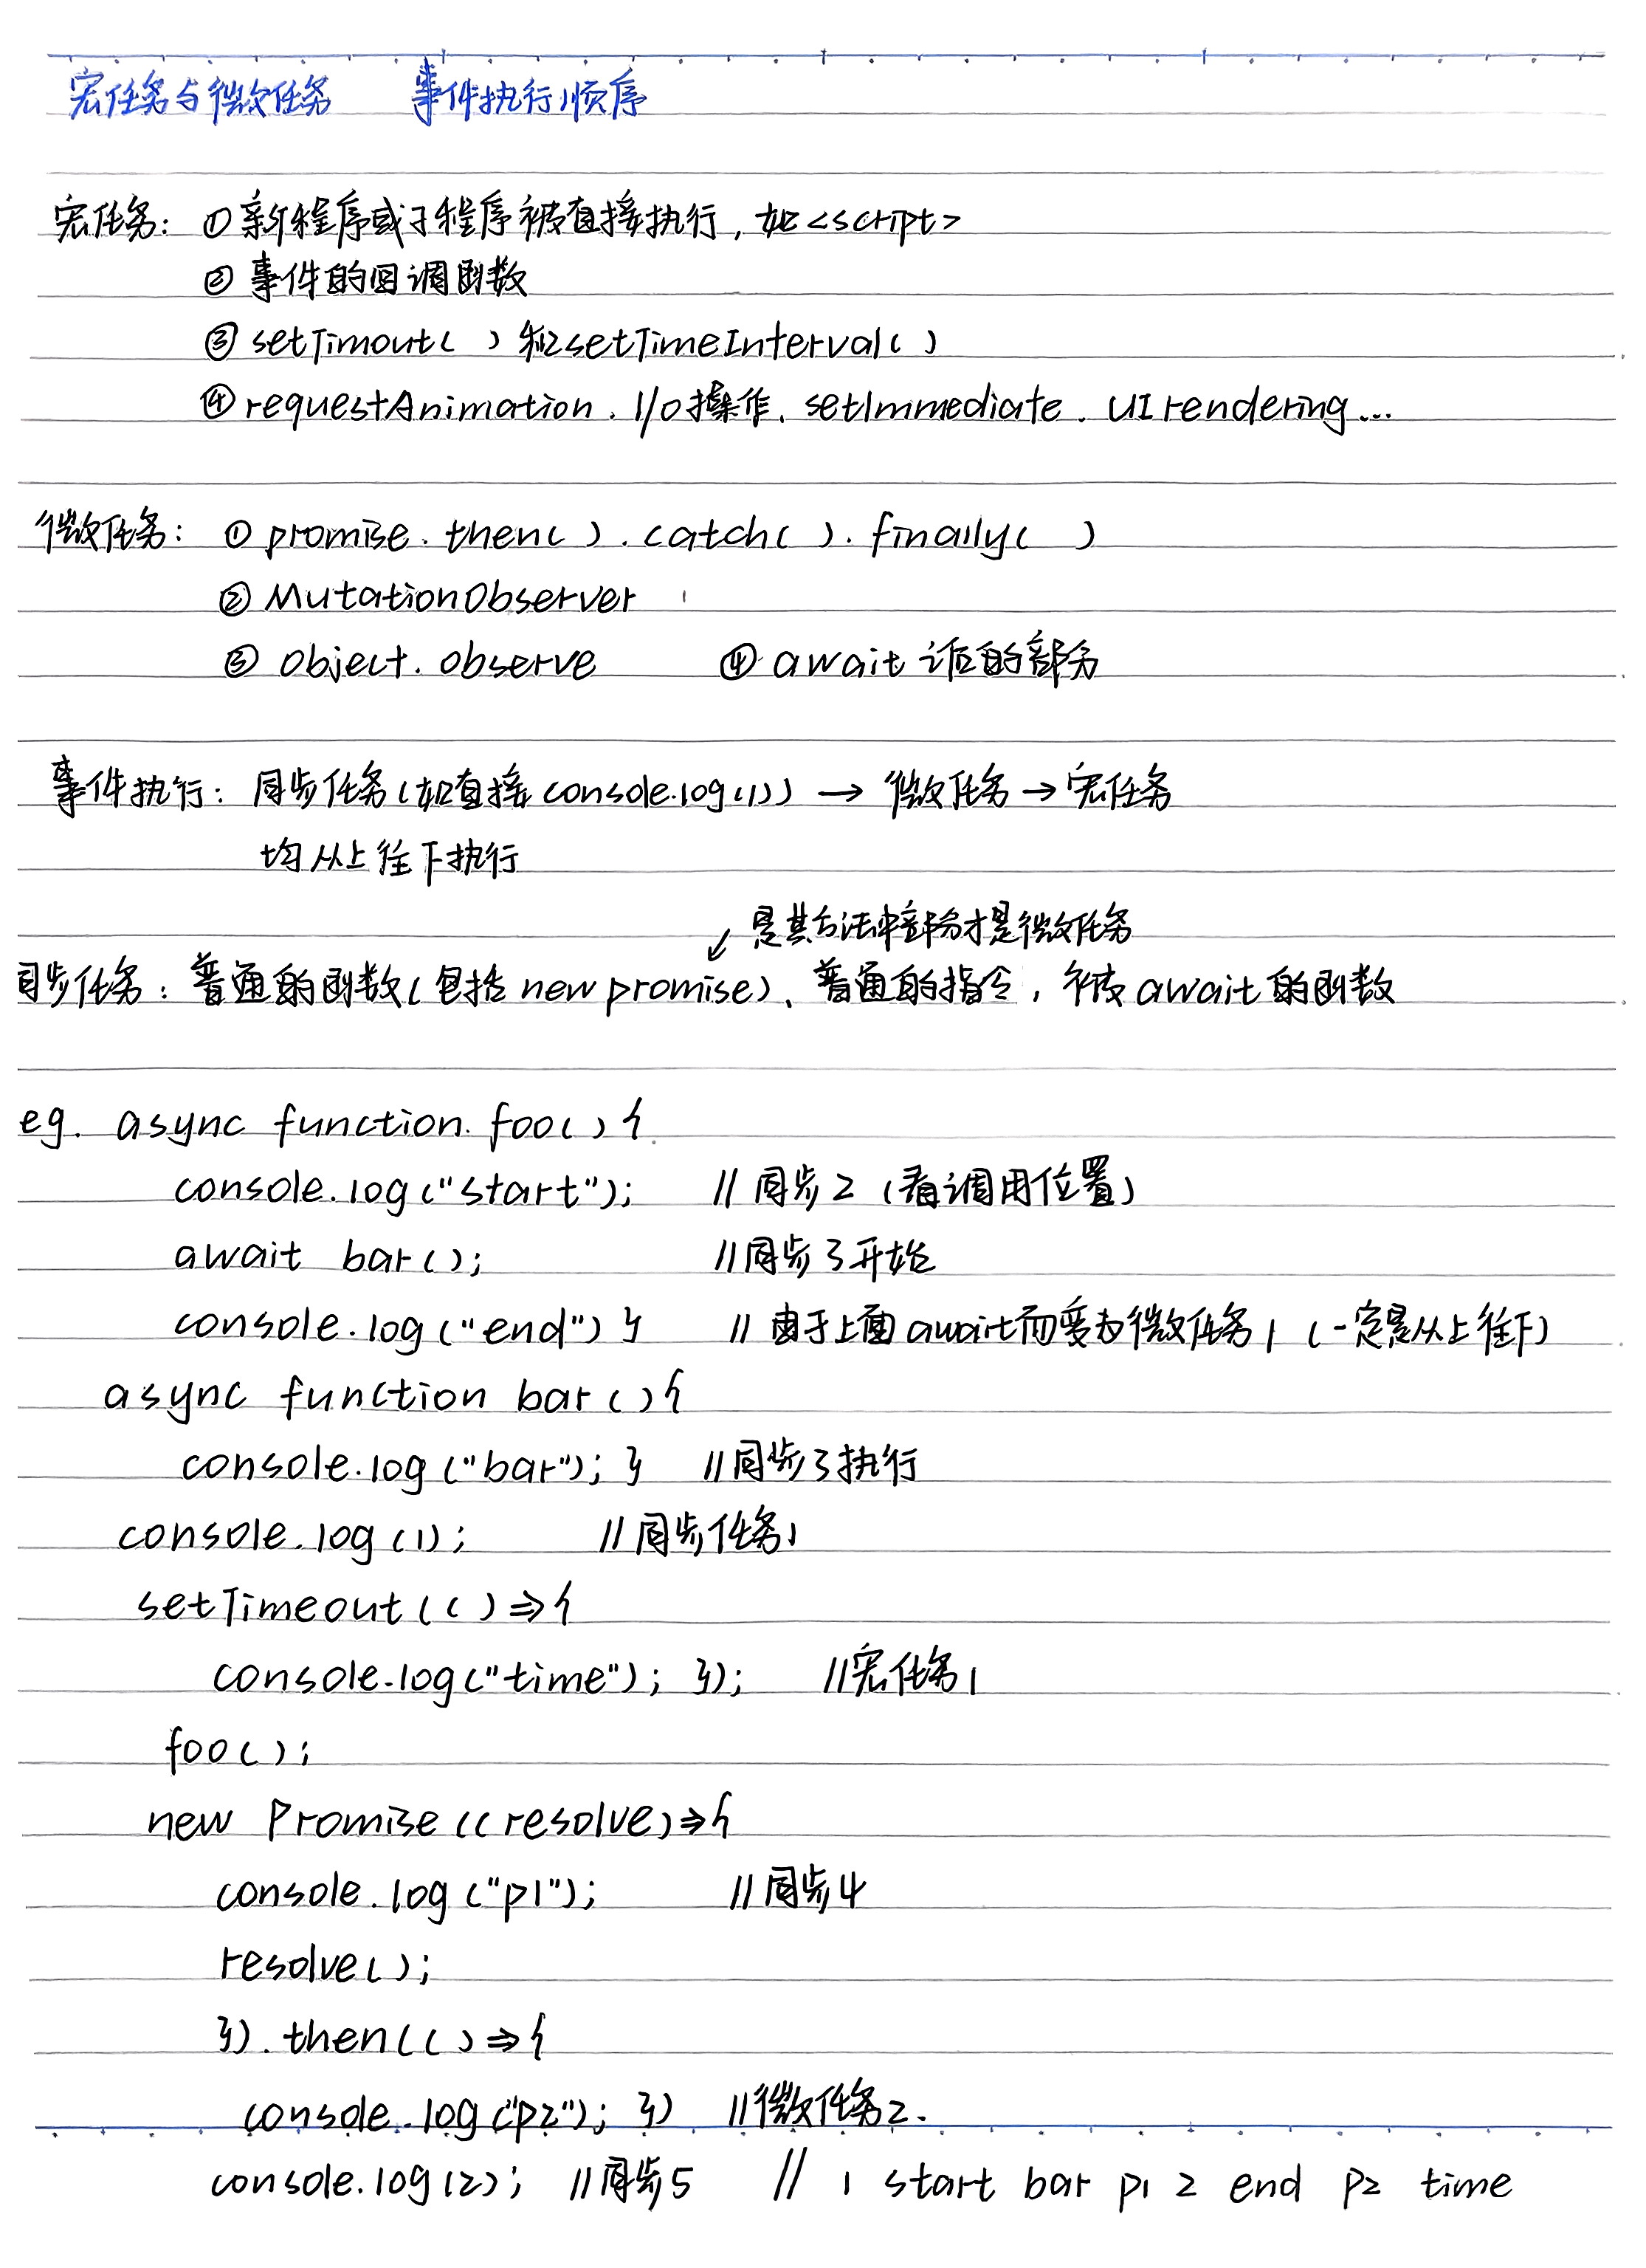 宏任务与微任务 事件执行顺序
宏任务: ①新程序或子程序被直接执行, 如<script>
②事件的回调函数
③setTimout( ) 和setTimeInterval( )
④requestAnimation、I/O操作、setImmediate、UI rendering...
微任务: ①promise.then( ).catch( ).finally( )
②MutationObserver
③object.observe ④await 后的部分
事件执行: 同步任务(如直接console.log(1)) → 微任务 → 宏任务
均从上往下执行
↙是其方法中部分才是微任务
同步任务: 普通的函数(包括 new promise)、普通的指令, 被 await 的函数
eg. async function foo(){
console.log("start"); //同步2 (看调用位置)
await bar(); //同步3开始
console.log("end")} //由于上面await而变为微任务1 (一定是从上往下)
async function bar(){
console.log("bar"); } //同步3执行
console.log(1); //同步任务1
setTimeout(( )=>{
console.log("time"); }); //宏任务1
foo();
new Promise((resolve)=>{
console.log("p1"); //同步4
resolve();
}).then(( )=>{
console.log("p2"); }) //微任务2.
console.log(2); //同步5 // 1 start bar p1 2 end p2 time